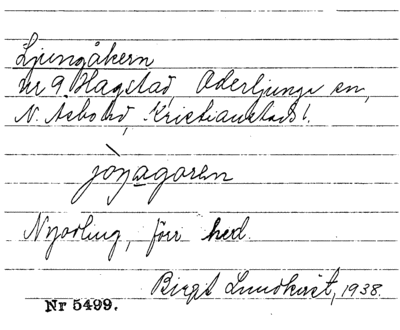 Ljungåkern
nr 9 Hagstad, Oderljunga sn,
N. Åsbo hd, Kristianstads l.
jòŋagoren
Nyodling, förr hed.
Birgit Lundkvist, 1938.
Nr 5499.